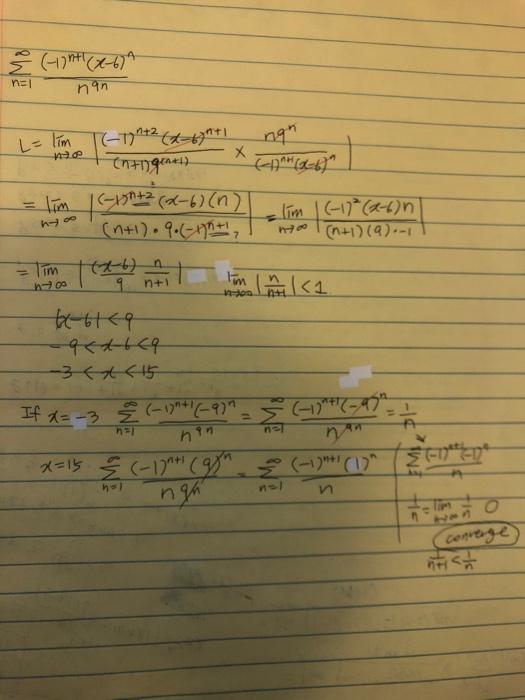 ∞ Σ n=1 (-1)^n+1 (x-6)^n / n9^n
L = lim n→∞ | (-1)^n+2 (x-6)^n+1 / (n+1)9^(n+1) × n9^n / (-1)^n+1 (x-6)^n |
= lim n→∞ | (-1)^n+2 (x-6)(n) / (n+1)·9·(-1)^n+1 | = lim n→∞ | (-1)^2 (x-6)n / (n+1)(9)·-1 |
= lim n→∞ | (x-6)/9 n/n+1 | lim n→∞ | n/n+1 | < 1
|x-6| < 9
-9 < x-6 < 9
-3 < x < 15
If x = -3 ∞ Σ n=1 (-1)^n+1 (-9)^n / n9^n = ∞ Σ n=1 (-1)^n+1 (-9)^n / n9^n = 1/n
x = 15 ∞ Σ n=1 (-1)^n+1 (9)^n / n9^n = ∞ Σ n=1 (-1)^n+1 (1)^n / n
Σ (-1)^n+1 (-1)^n / n
1/n = lim n→∞ 1/n 0
converge
1/n+1 < 1/n